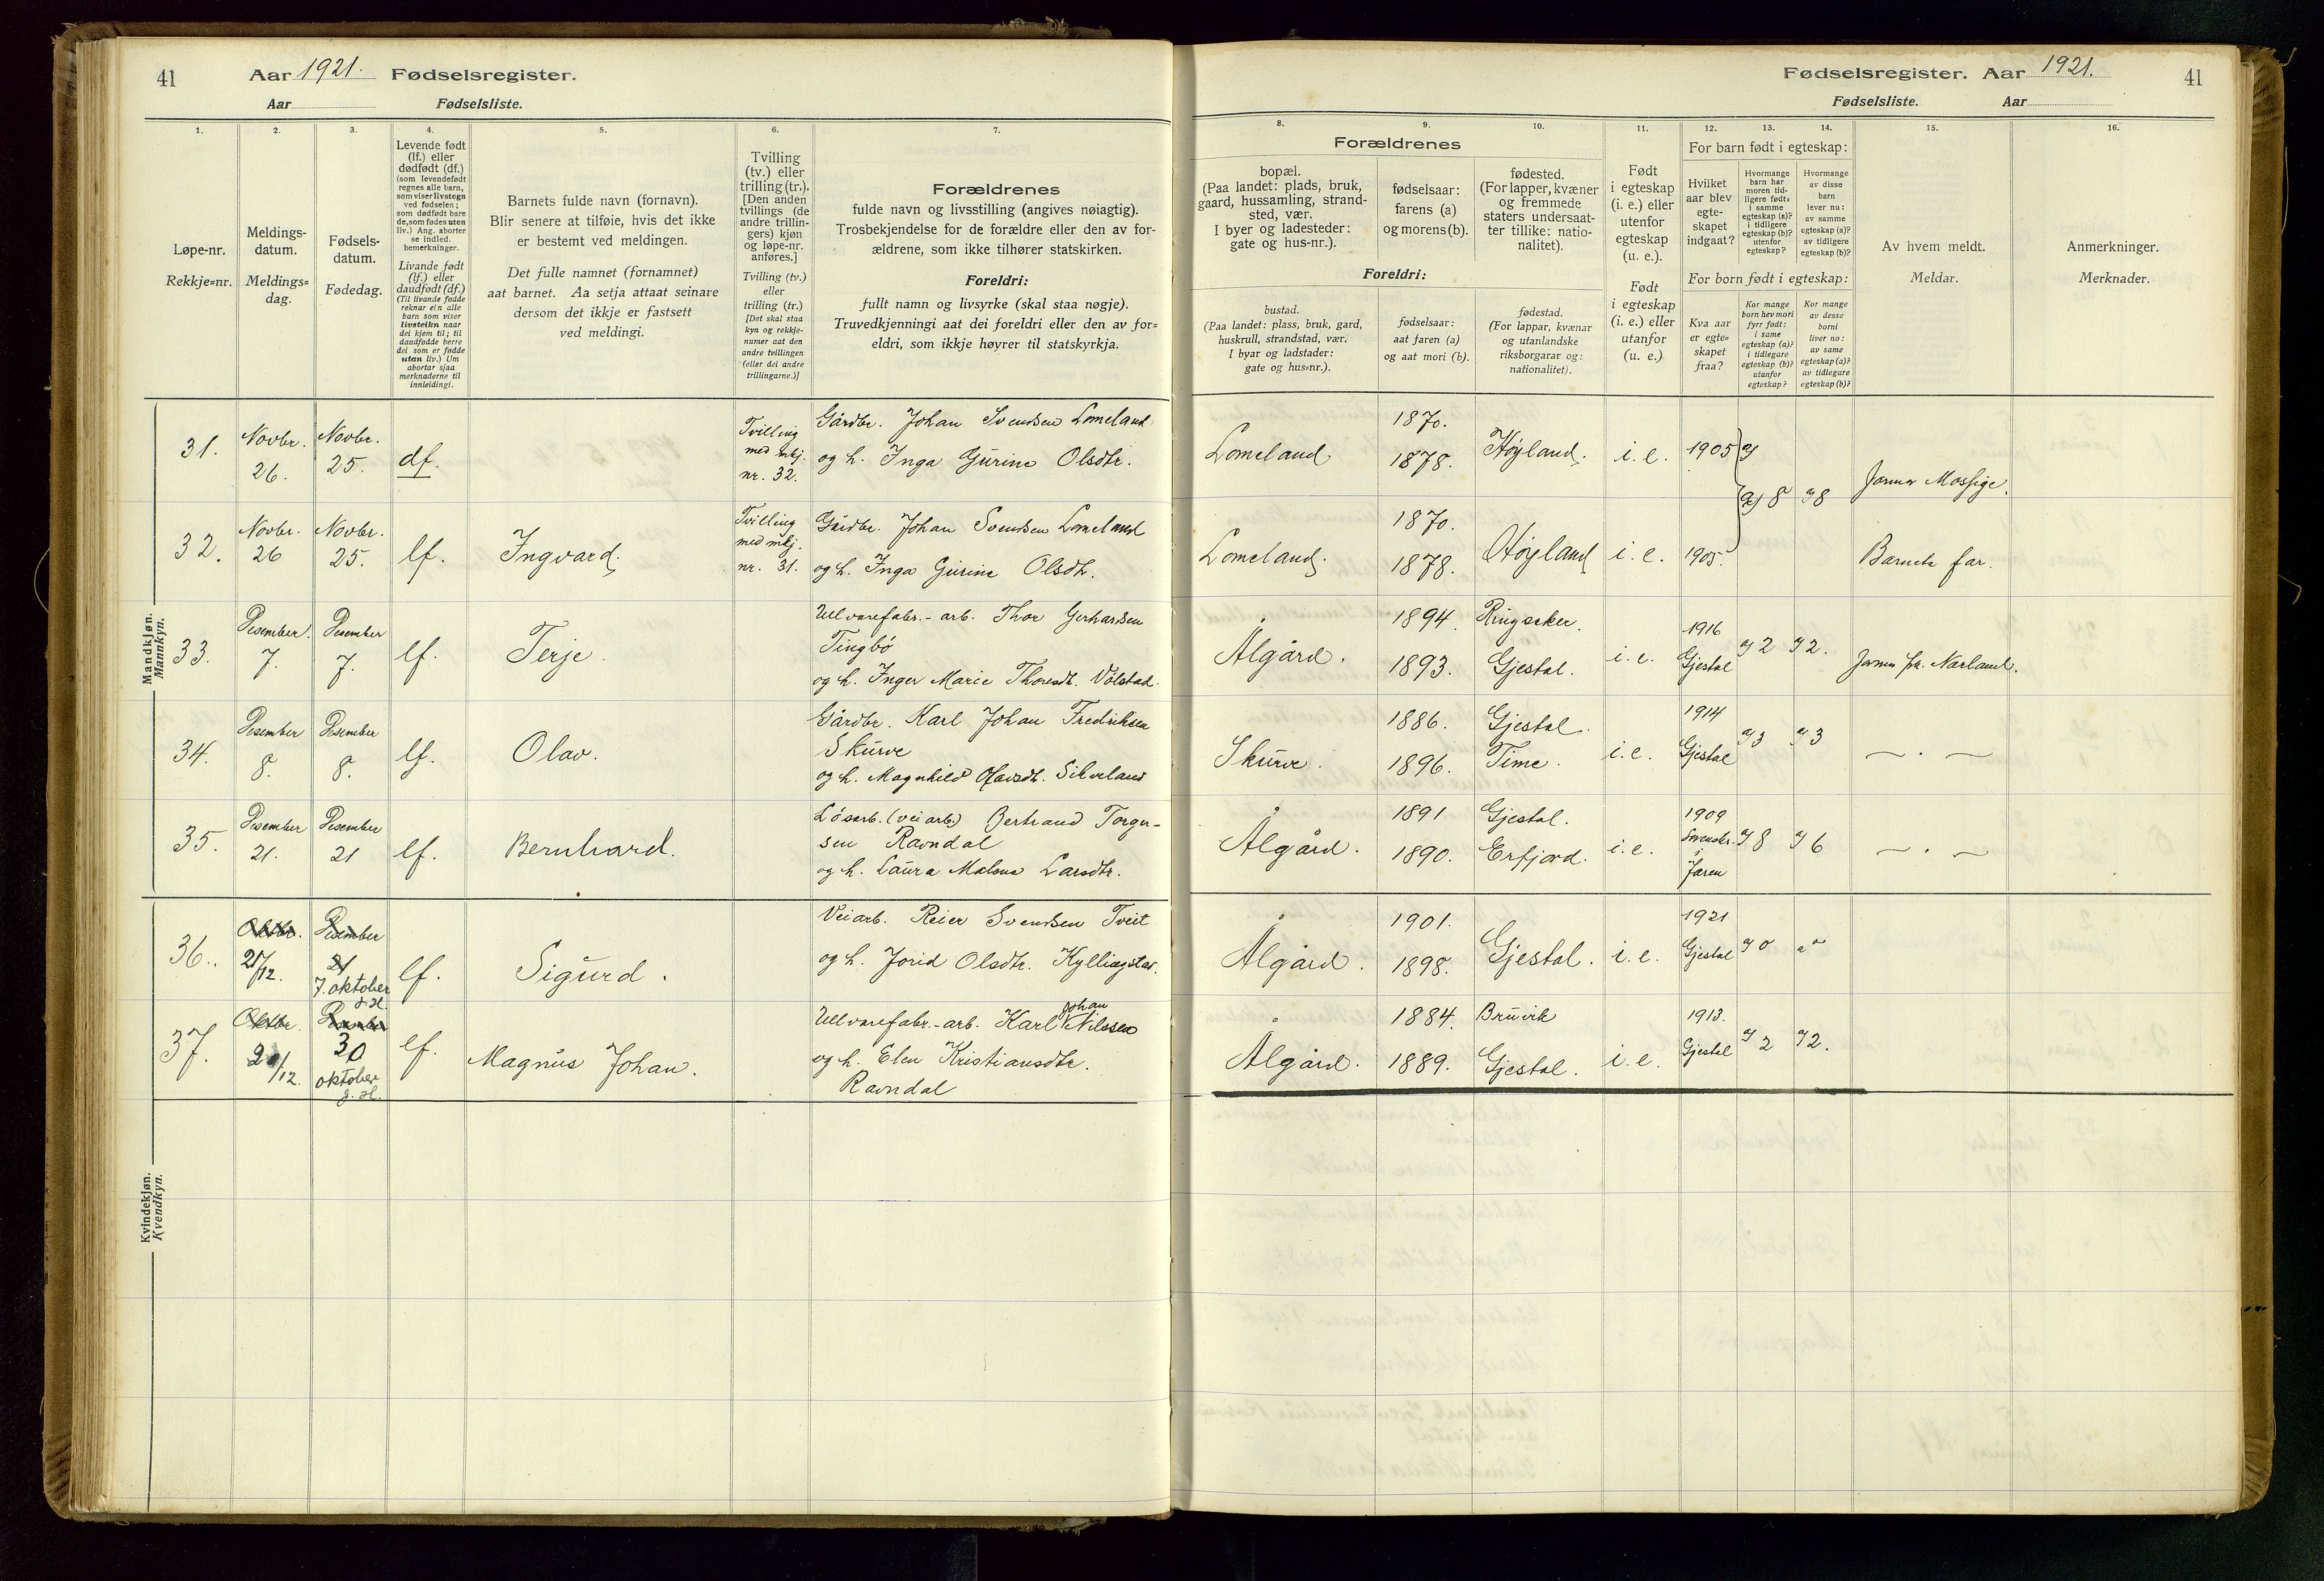 41 Aar 1921. Fødselsregister.
Aar Fødselsliste.
Fødselsregister. Aar 1921. 41
Fødselsliste. Aar
1. 2. 3. 4. 5. 6. 7.
Løpe-nr.
Rekkje=nr.
Meldings-
datum.
Meldings=
dag.
Fødsels-
datum.
Fødedag.
Levende født
(lf.) eller
dødfødt (df.)
(som levendefødt
regnes alle barn,
som viser livstegn
ved fødselen;
som dødfødt bare
de, som fødes uten
liv.) Ang. aborter
se indled.
bemerkninger.
Livande født
(lf.) eller
daudfødt (df.)
(Til livande fødde
reknar ein alle
barn som viser
livsteikn naar
dei kjem til; til
daudfødde berre
dei som er fødde
utan liv.) Um
abortar sjaa
merknaderne til
innleidingi.
Barnets fulde navn (fornavn).
Blir senere at tilføie, hvis det ikke
er bestemt ved meldingen.
Det fulle namnet (fornamnet)
aat barnet. Aa setja attaat seinare
dersom det ikkje er fastsett
ved meldingi.
Tvilling
(tv.) eller
trilling (tr.).
[Den anden
tvillings (de
andre trillin-
gers) kjøn
og løpe-nr.
anføres.]
Tvilling (tv.)
eller
trilling (tr.)
[Det skal staa
kyn og rekkje-
numer aat den
andre tvillingen
(eller dei andre
trillingarne.)]
Forældrenes
fulde navn og livsstilling (angives nøiagtig).
Trosbekjendelse for de forældre eller den av for-
ældrene, som ikke tilhører statskirken.
Foreldri:
fullt namn og livsyrke (skal staa nøgje).
Truvedkjenningi aat dei foreldri eller den av for=
eldri, som ikkje høyrer til statskyrkja.
8. 9. 10. 11. 12. 13. 14. 15. 16.
Forældrenes
bopæl.
(Paa landet: plads, bruk,
gaard, hussamling, strand-
sted, vær.
I byer og ladesteder:
gate og hus-nr.).
fødselsaar:
farens (a)
og morens (b).
fødested.
(For lapper, kvæner
og fremmede
staters undersaat-
ter tillike: natio-
nalitet).
Foreldri:
bustad.
(Paa landet: plass, bruk, gard,
huskrull, strandstad, vær.
I byar og ladstader:
gate og hus=nr.).
fødselsaar:
aat faren (a)
og aat mori (b).
fødestad.
(For lappar, kvænar
og utanlandske
riksborgarar og:
nationalitet).
Født
i egteskap
(i. e.) eller
utenfor
egteskap
(u. e.).
Født
i egteskap
(i. e.) eller
utanfor
(u. e.)
For barn født i egteskap:
Hvilket
aar blev
egte-
skapet
indgaat?
Hvormange
barn har
moren tid-
ligere født:
i samme
egteskap (a)?
i tidligere
egteskap (b)?
utenfor
egteskap?
Hvormange
av disse
barn
lever nu:
av samme
egteskap (a)?
av tidligere
egteskap (b)?
For born født i egteskap:
Kva aar
er egte=
skapet
fraa?
Kor mange
born hev mori
fyrr født:
i same
egteskap (a)?
i tidlegare
egteskap (b)?
utanfor
egteskap?
Kor mange
av desse
borni
liver no:
av same
egteskap (a)?
av tidlegare
egteskap (b)?
Av hvem meldt.
Meldar.
Anmerkninger.
Merknader.
Mandkjøn.
Mannkyn.
31. Novbr. 26. Novbr. 25. df. Tvilling med mkj. nr. 32. Gårdbr. Johan Svendsen Lomeland
og h. Inga Gurine Olsdtr.
Lomeland 1870. 1878. Høyland. i. e. 1905 a) 8 a) 8 Mossige.
32. Novbr. 26 Novbr. 25. lf. Ingvard. Tvilling med mkj. nr. 31. Gårdbr. Johan Svendsen Lomeland
og h. Inga Gurine Olsdtr.
Lomeland. 1870. 1878. Høyland i. e. 1905. Barnets far.
33. Desember. 7. Desember 7. lf. Terje. Ullvarefabr.-arb. Thor Gerhardsen
Tingbø
og h. Inger Marie Thoresdt. Völstad.
Ålgård. 1894. 1893. Ringsaker. Gjestal. i. e. 1916 Gjestal a) 2 a) 2. Nærland.
34. Desember 8. Desember 8. lf. Olav. Gårdbr. Karl Johan Fredriksen
Skurve
og h. Magnhild Olavsdt. Sikveland
Skurve. 1886. 1896. Gjestal. Time. i. e. 1914 Gjestal a) 3 a) 3 — . —
35. Desember 21. Desember 21 lf. Bernhard. Løsarb. (veiarb.) Bertrand Torger-
sen Ravndal
og h. Laura Malena Larsdtr.
Ålgård. 1891 1890. Gjestal. Erfjord. i. e. 1909 i Jæren a) 8 a) 6 — . —
36. Oktbr. 21/12. Desember 21 7. oktober lf. Sigurd. Veiarb. Reier Svendsen Tveit
og h. Jorid Olsdtr. Kyllingstad.
Ålgård. 1901. 1898. Gjestal. i. e. 1921 Gjestal a) 0
37. Oktbr. 20/12. Desember 30 oktober lf. Magnus Johan. Ullvarefabr.-arb. Karl Johan Nilssen
og h. Elen Kristiansdtr.
Ravndal
Ålgård. 1884. 1889. Bruvik Gjestal. i. e. 1913. Gjestal a) 2 a) 2.
Kvindekjøn.
Kvendkyn.